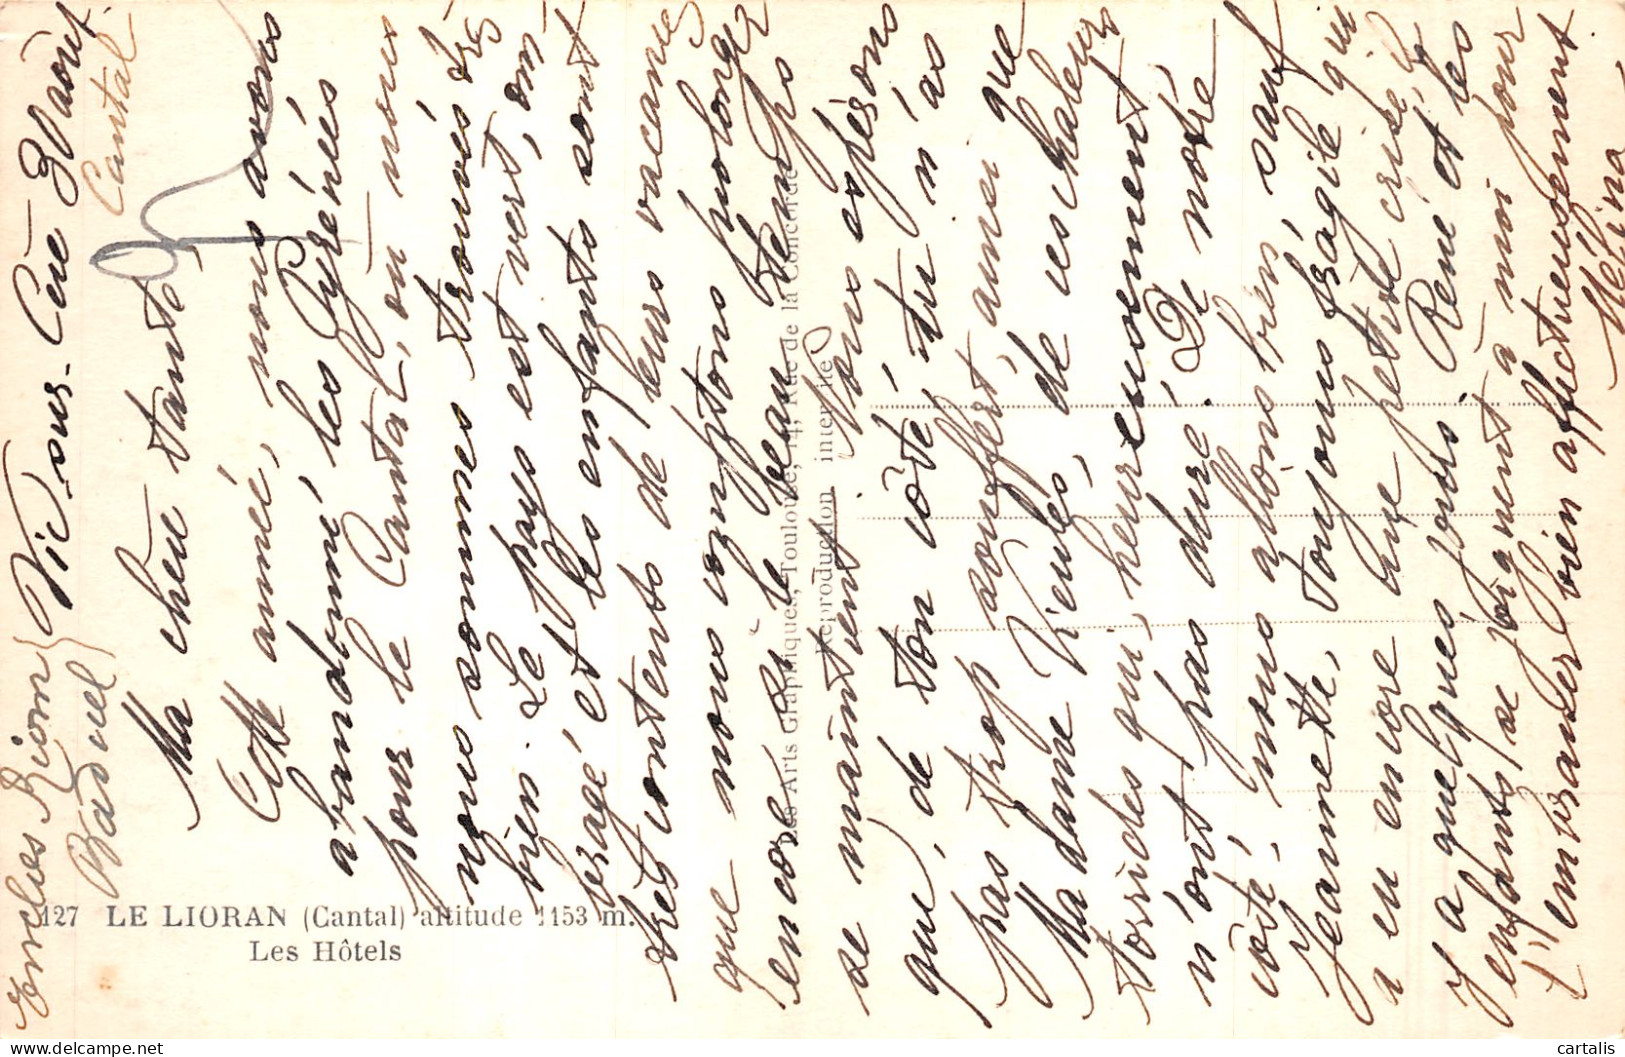 Vic-sur-Cère 9 Août.
Cantal
Ma chère tante
Cette année, nous avons
abandonné, les Pyrénées
pour le Cantal, où nous
nous sommes trouvés très
bien. Le pays est vert, om
bragé et les enfants sont
très contents de leurs vacances
que nous comptons prolonger
encore si le beau temps
se maintient. Nous espérons
que, de ton côté, tu n'as
pas trop souffert, ainsi que
Madame Vieules, de ces chaleurs
torrides qui, heureusement
n'ont pas duré. De notre
côté, nous allons bien sauf
Jeannette, toujours fragile qui
a eu encore une petite crise il
y a quelques jours. René et les
enfants se joignent à moi pour
t'embrasser bien affectueusement.
Mélina
127 LE LIORAN (Cantal) altitude 1153 m.
Les Hôtels
Les Arts Graphiques, Toulouse, 14, Rue de la Concorde
Reproduction interdite
cartalis